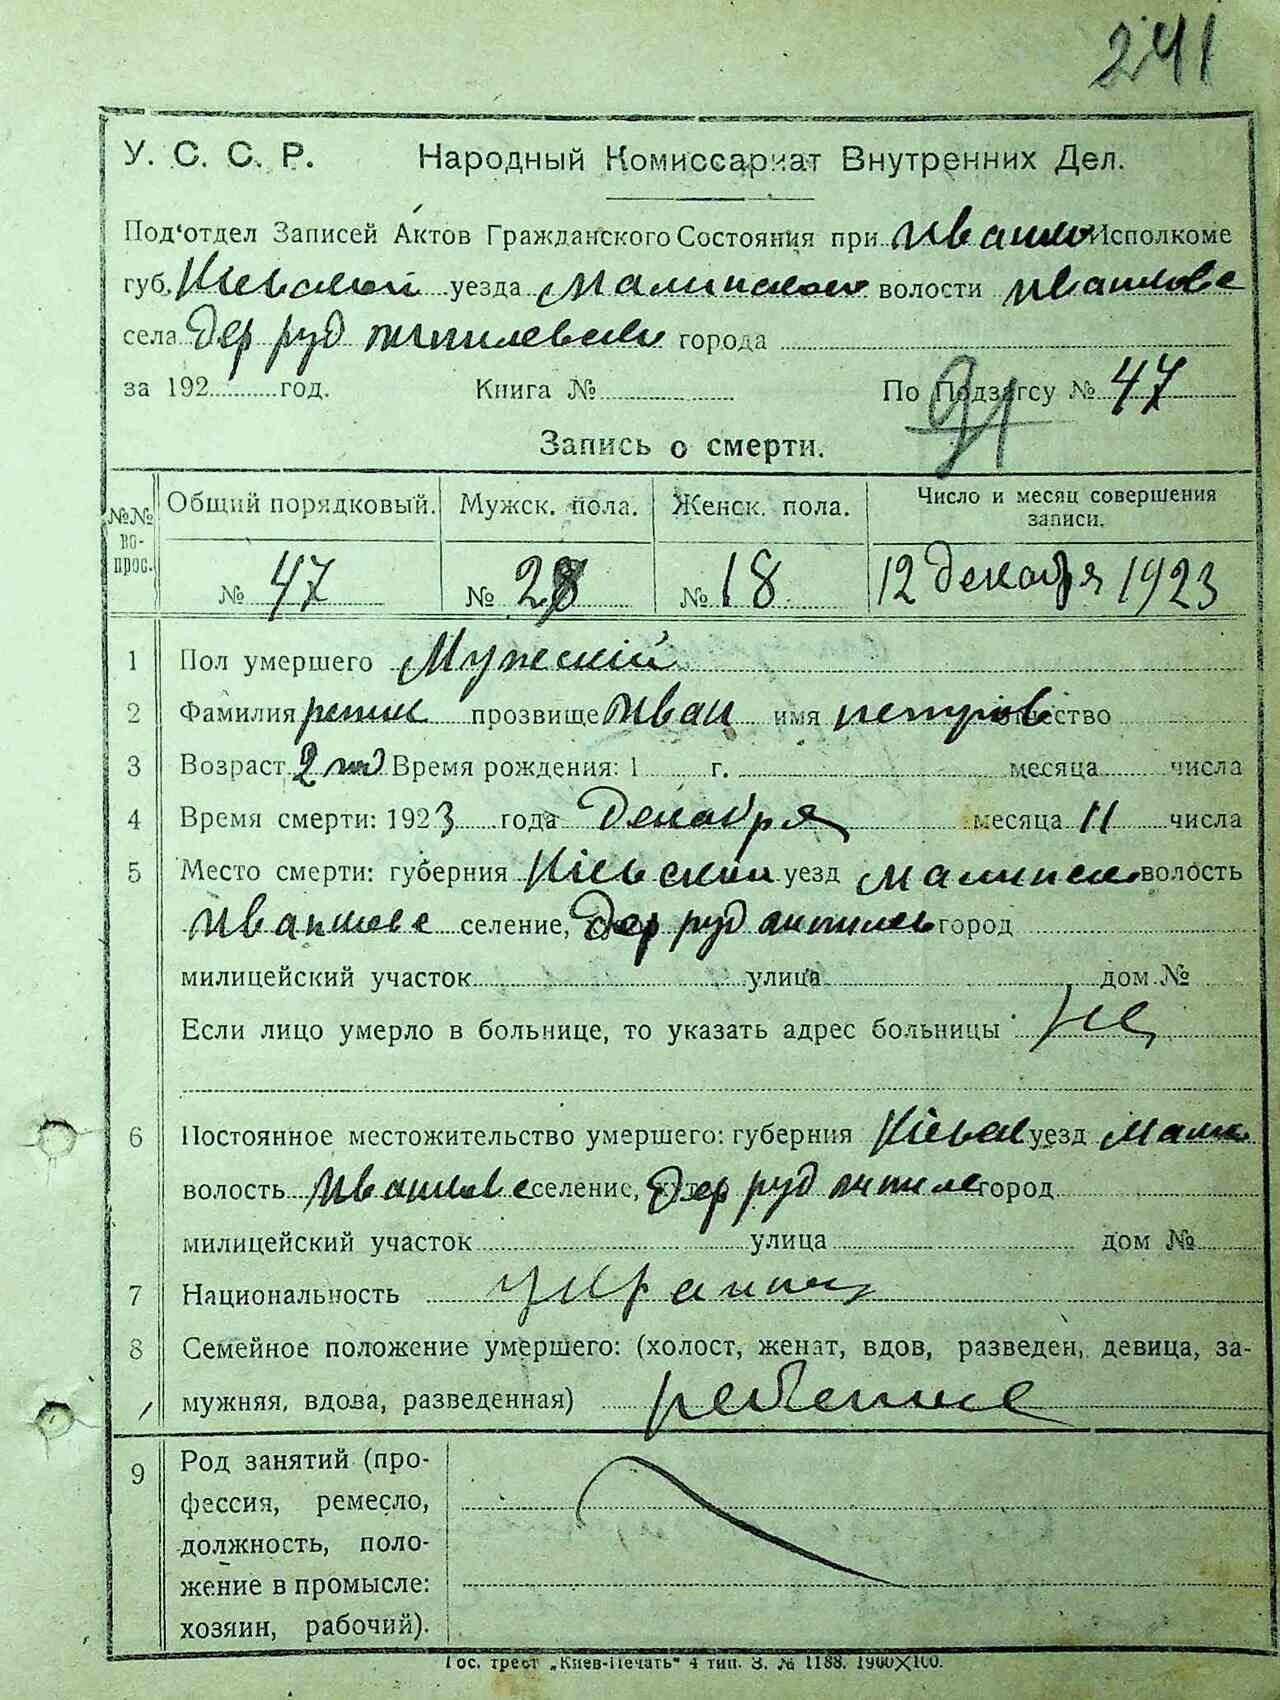 241
У. С. С. Р. Народный Комиссариат Внутренних Дел.
Под‘отдел Записей Актов Гражданского Состояния при Ивашко Исполкоме
губ. Кіевской уезда Малинском волости Ивашкове
села Дер руд города
за 192 год. Книга № По Подзагсу № 47
91
Запись о смерти.
№№ во- прос. Общий порядковый. Мужск. пола. Женск. пола. Число и месяц совершения записи.
№ 47 № 28 № 18 12 декабря 1923
1 Пол умершего Мужскій
2 Фамилия прозвище Иван имя петров отчество
3 Возраст 2 Время рождения: 1 г. месяца числа
4 Время смерти: 1923 года Декабря месяца 11 числа
5 Место смерти: губерния Кіевскои уезд малинск волость
Ивашкове селение, Дер руд город
милицейский участок улица дом №
Если лицо умерло в больнице, то указать адрес больницы
6 Постоянное местожительство умершего: губерния Кіевск уезд Малин
волость Ивашкове селение, Дер руд город
милицейский участок улица дом №
7 Национальность
8 Семейное положение умершего: (холост, женат, вдов, разведен, девица, за-
мужняя, вдова, разведенная)
9 Род занятий (про-
фессия, ремесло,
должность, поло-
жение в промысле:
хозяин, рабочий).
Гос. трест „Киев-Печать“ 4 тип. З. № 1188. 1900×100.